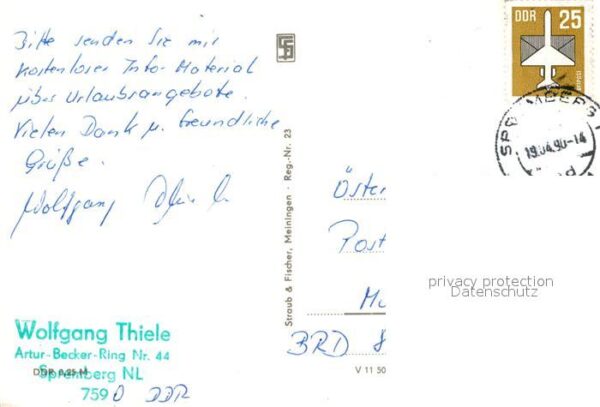 Bitte senden Sie mir
kostenloses Info-Material
über Urlaubsangebote.
Vielen Dank u. freundliche
Grüße.
Wolfgang Thiele
Wolfgang Thiele
Artur-Becker-Ring Nr. 44
Spremberg NL
7590 DDR
DDR 0,25 M
Straub & Fischer, Meiningen · Reg.-Nr. 23
V 11 50
DDR 25
SPREMBERG 1
19.04.90-14
Öster
Post
Mü
BRD 8
privacy protection
Datenschutz